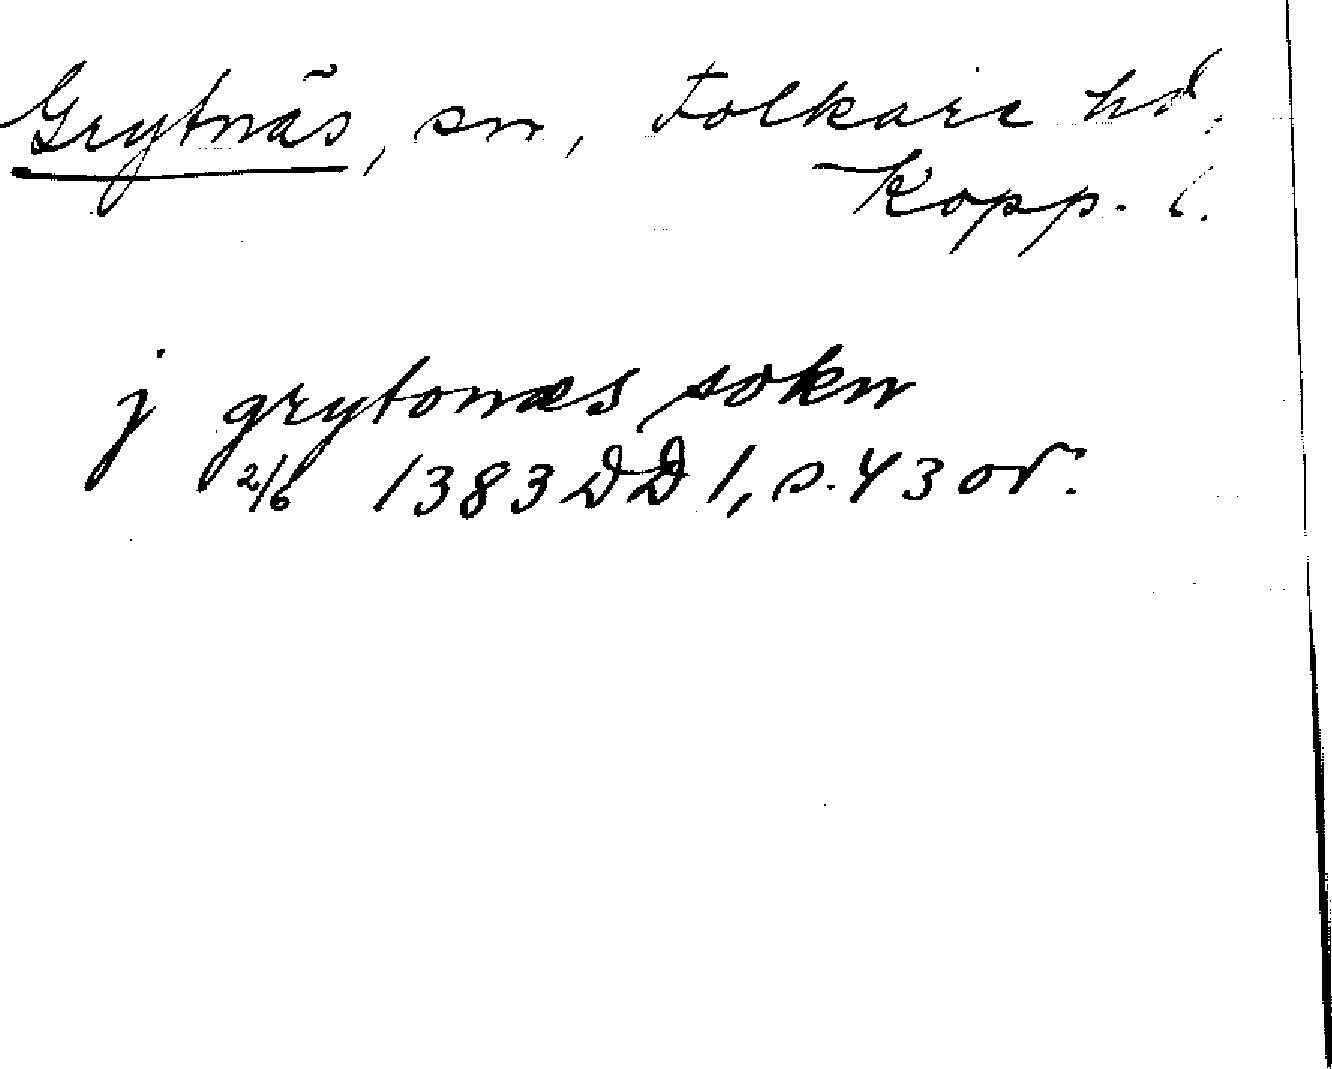 Grytnäs, sn, Folkare hd.
Kopp. l.
j grytonæs sokn
2/6 1383 DD 1, s. 43 or.